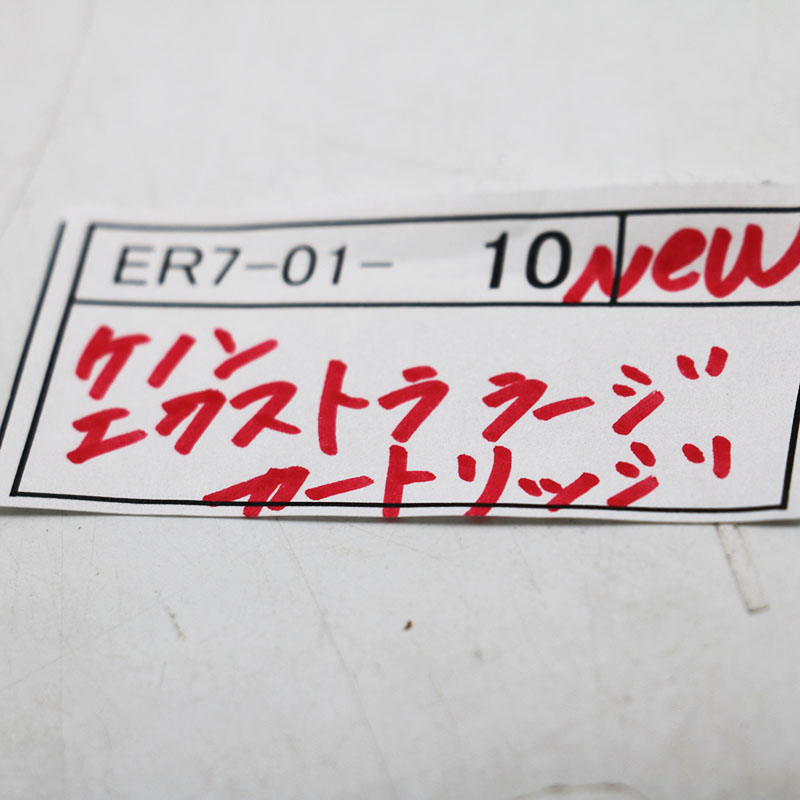 ER7-01- 10 NEW
ケノン
エクストララージ
カートリッジ